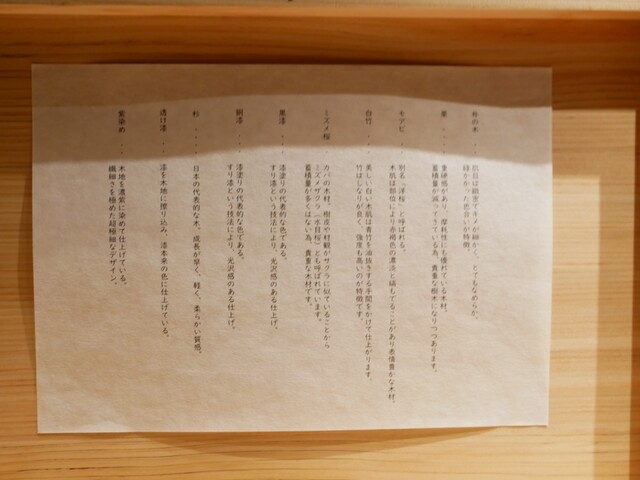 朴の木・・・肌目は緻密でキメが細かく、とてもなめらか。
緑がかった色合いが特徴。
栗・・・・・重硬感があり、摩耗性にも優れている木材。
蓄積量が減ってきている為、貴重な樹木になりつつあります。
モアビ・・・別名「洋桜」と呼ばれる。
木肌は部位により赤褐色の濃淡と縞もでることがあり表情豊かな木材。
白竹・・・・美しい白い木肌は青竹を油抜きする手間をかけて仕上がります。
竹はしなりが良く、強度も高いのが特徴です。
ミズメ桜・・カバの木材。樹皮や材観がサクラに似ていることから
ミズメザクラ（水目桜）とも呼ばれています。
蓄積量が多くはない為、貴重な木材です。
黒漆・・・・漆塗りの代表的な色である。
すり漆という技法により、光沢感のある仕上げ。
銅漆・・・・漆塗りの代表的な色である。
すり漆という技法により、光沢感のある仕上げ。
杉・・・・・日本の代表的な木。成長が早く、軽く、柔らかい質感。
透け漆・・・漆を木地に擦り込み、漆本来の色に仕上げている。
紫染め・・・木地を濃紫に染めて仕上げている。
繊細さを極めた超極細なデザイン。